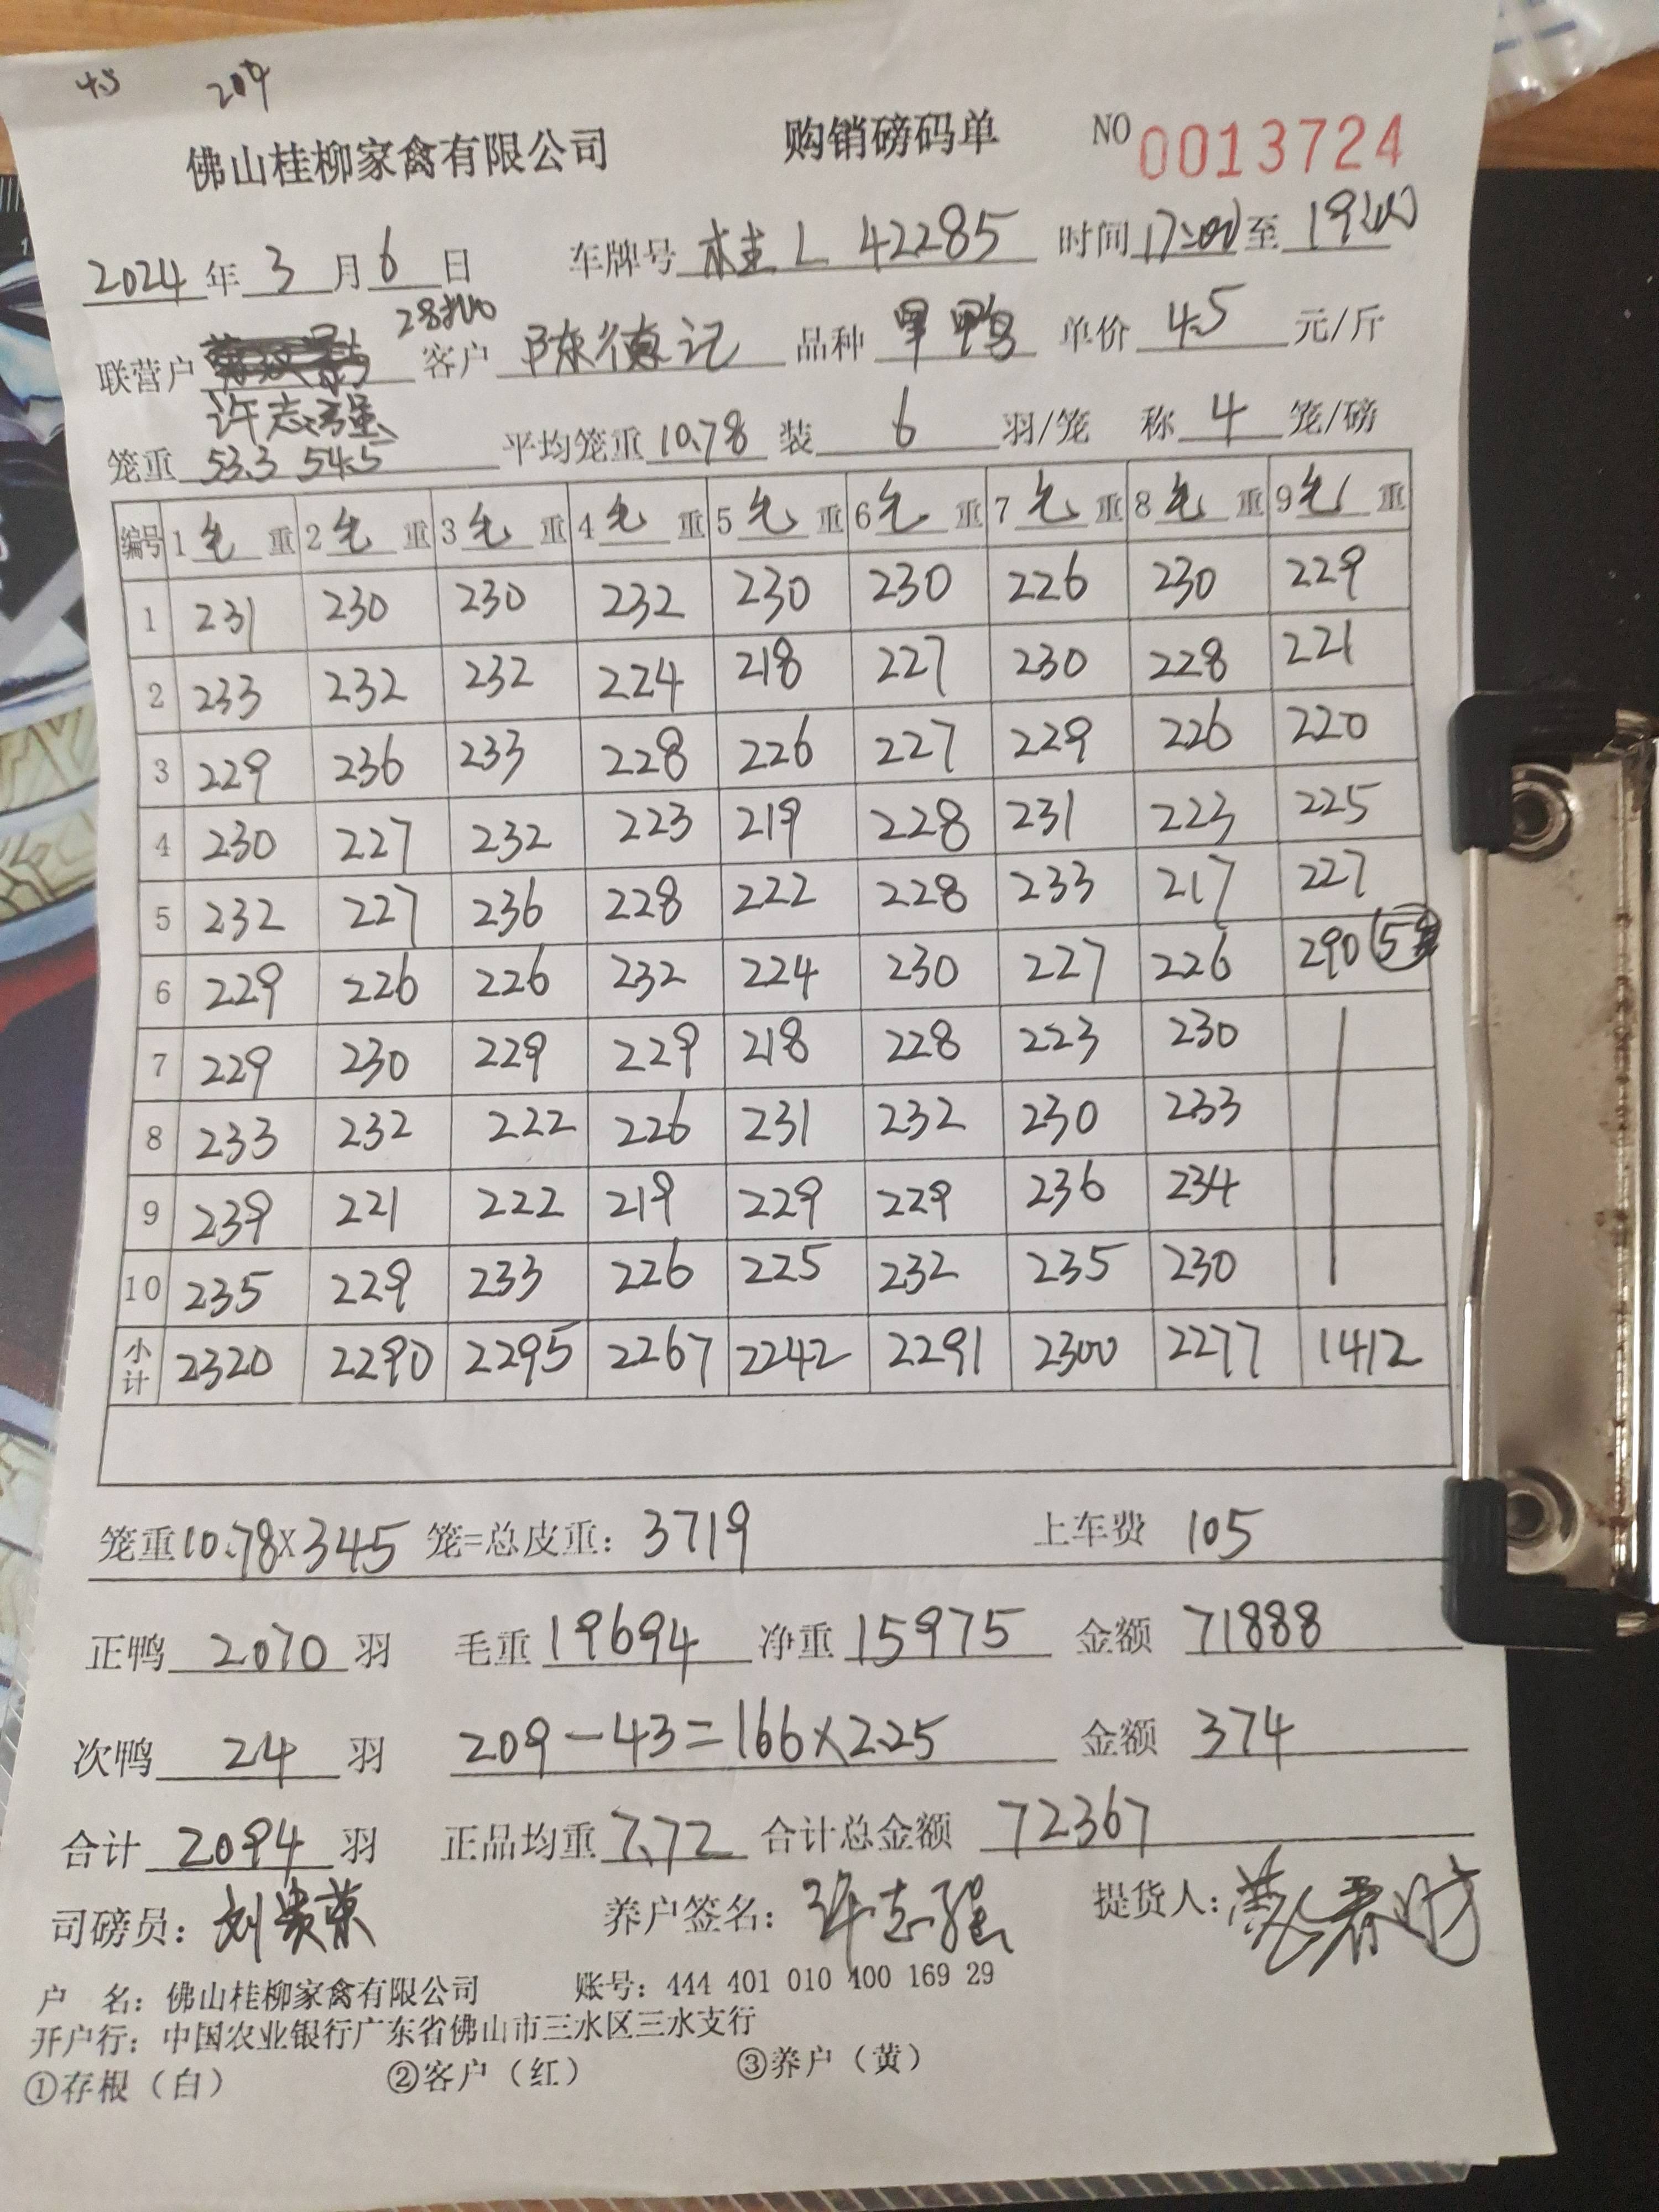 45 209
佛山桂柳家禽有限公司 购销磅码单 NO 0013724
2024年3月6日 车牌号 桂L 42285 时间 17:00至19:00
联营户 客户 陈德记 品种 单价 4.5 元/斤
许志强
笼重 53.3 54.5 平均笼重 10.78 装 6 羽/笼 称 4 笼/磅
编号 1毛重 2毛重 3毛重 4毛重 5毛重 6毛重 7毛重 8毛重 9毛重
1 231 230 230 232 230 230 226 230 229
2 233 232 232 224 218 227 230 228 221
3 229 236 233 228 226 227 229 226 220
4 230 227 232 223 219 228 231 223 225
5 232 227 236 228 222 228 233 217 227
6 229 226 226 232 224 230 227 226 290
7 229 230 229 229 218 228 223 230
8 233 232 222 226 231 232 230 233
9 239 221 222 219 229 229 236 234
10 235 229 233 226 225 232 235 230
小计 2320 2290 2295 2267 2242 2291 2300 2277 1412
笼重10.78×345 笼=总皮重：3719 上车费 105
正鸭 2070 羽 毛重 19694 净重 15975 金额 71888
次鸭 24 羽 209-43=166×2.25 金额 374
合计 2094 羽 正品均重 7.72 合计总金额 72367
司磅员：刘贵荣 养户签名：许志强 提货人：
户 名：佛山桂柳家禽有限公司 账号：444 401 010 400 169 29
开户行：中国农业银行广东省佛山市三水区三水支行
①存根（白） ②客户（红） ③养户（黄）